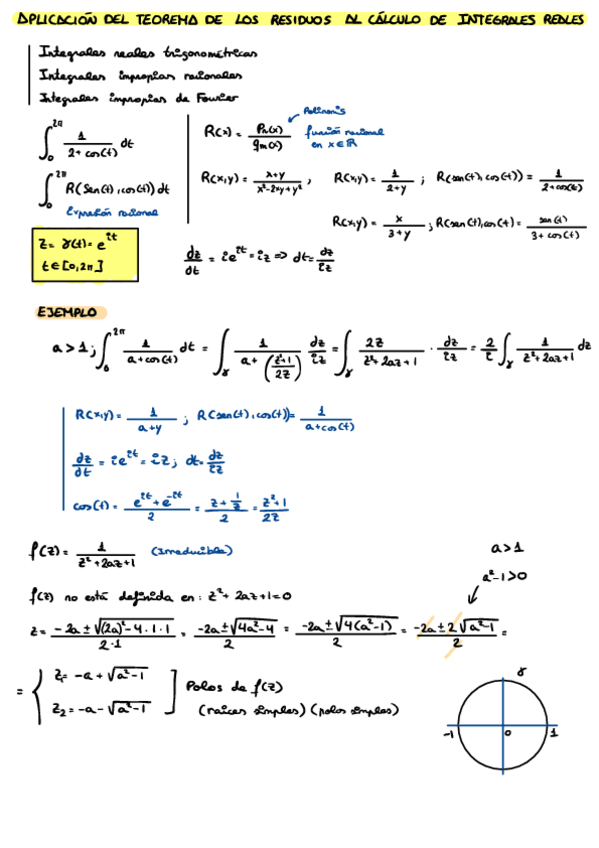 APLICACIÓN DEL TEOREMA DE LOS RESIDUOS AL CÁLCULO DE INTEGRALES REALES
Integrales reales trigonométricas
Integrales impropias racionales
Integrales impropias de Fourier
∫₀^{2π} 1/(2+cos(t)) dt
∫₀^{2π} R(sen(t), cos(t)) dt
Expresión racional
Polinomis
R(x) = Pn(x)/qm(x) función racional en x∈ℝ
R(x,y) = (x+y)/(x²-2xy+y²) , R(x,y) = 1/(2+y) ; R(sen(t), cos(t)) = 1/(2+cos(t))
R(x,y) = x/(3+y) ; R(sen(t), cos(t) = sen(t)/(3+cos(t))
z = γ(t) = e^{it}
t∈[0,2π]
dz/dt = ie^{it} = iz => dt = dz/iz
EJEMPLO
a>1 ; ∫₀^{2π} 1/(a+cos(t)) dt = ∫_γ 1/(a+((z²+1)/2z)) dz/iz = ∫_γ 2z/(z²+2az+1) · dz/iz = 2/i ∫_γ 1/(z²+2az+1) dz
R(x,y) = 1/(a+y) ; R(sen(t), cos(t)) = 1/(a+cos(t))
dz/dt = ie^{it} = iz ; dt = dz/iz
cos(t) = (e^{it}+e^{-it})/2 = (z+1/z)/2 = (z²+1)/2z
f(z) = 1/(z²+2az+1) (Irreducible)
a>1
a²-1>0
f(z) no está definida en: z²+2az+1=0
z = (-2a±√((2a)²-4·1·1))/(2·1) = (-2a±√(4a²-4))/2 = (-2a±√(4(a²-1)))/2 = (-2a±2√(a²-1))/2 =
= { z₁ = -a+√(a²-1)
z₂ = -a-√(a²-1) ] Polos de f(z)
(raíces simples) (polos simples)
γ
-1 0 1